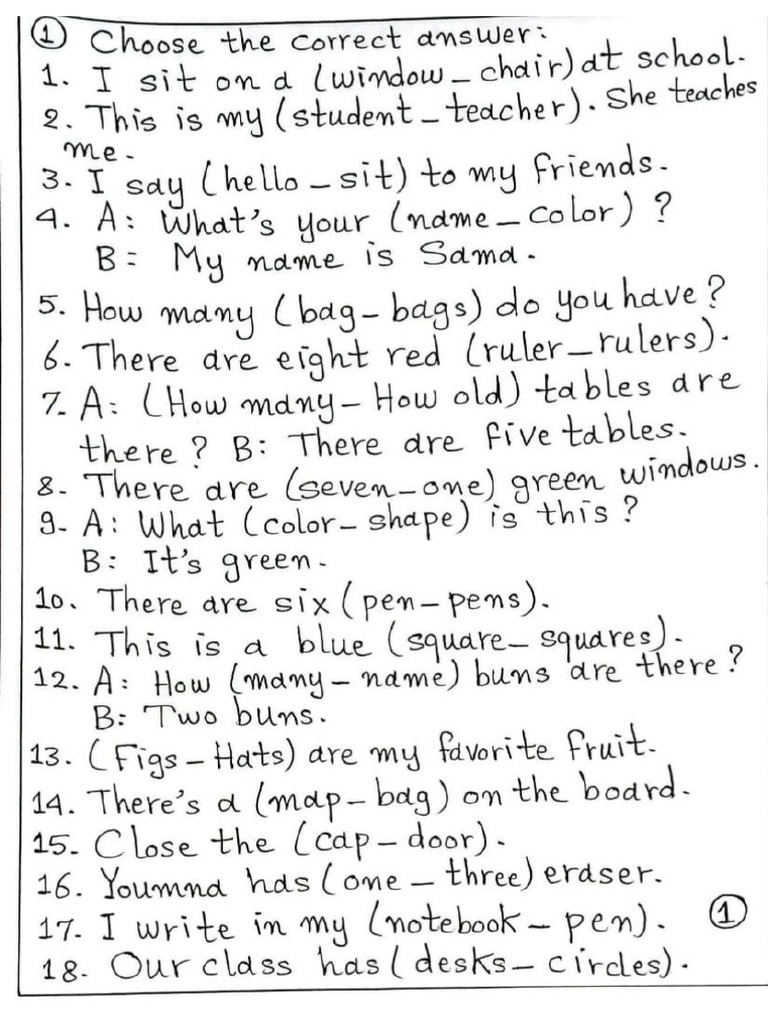 ① Choose the correct answer:
1. I sit on a (window – chair) at school.
2. This is my (student – teacher). She teaches
me.
3. I say (hello – sit) to my friends.
4. A: What's your (name – color) ?
B: My name is Sama.
5. How many (bag – bags) do you have?
6. There are eight red (ruler – rulers).
7. A: (How many – How old) tables are
there? B: There are five tables.
8. There are (seven – one) green windows.
9. A: What (color – shape) is this?
B: It's green.
10. There are six (pen – pens).
11. This is a blue (square – squares).
12. A: How (many – name) buns are there?
B: Two buns.
13. (Figs – Hats) are my favorite fruit.
14. There's a (map – bag) on the board.
15. Close the (cap – door).
16. Youmna has (one – three) eraser.
17. I write in my (notebook – pen). ①
18. Our class has (desks – circles).